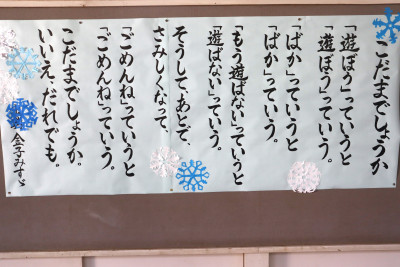 こだまでしょうか
「遊ぼう」っていうと
「遊ぼう」っていう。
「ばか」っていうと
「ばか」っていう。
「もう遊ばない」っていうと
「遊ばない」っていう。
そうして、あとで、
さみしくなって、
「ごめんね」っていうと
「ごめんね」っていう。
こだまでしょうか。
いいえ、だれでも。
金子みすゞ